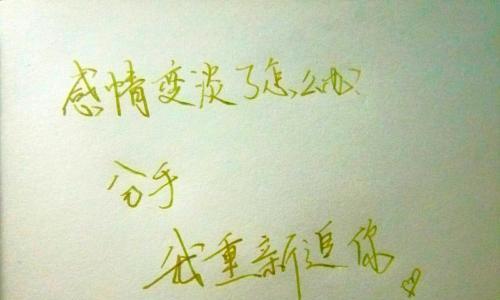 感情变淡了怎么办?
分手
我重新追你